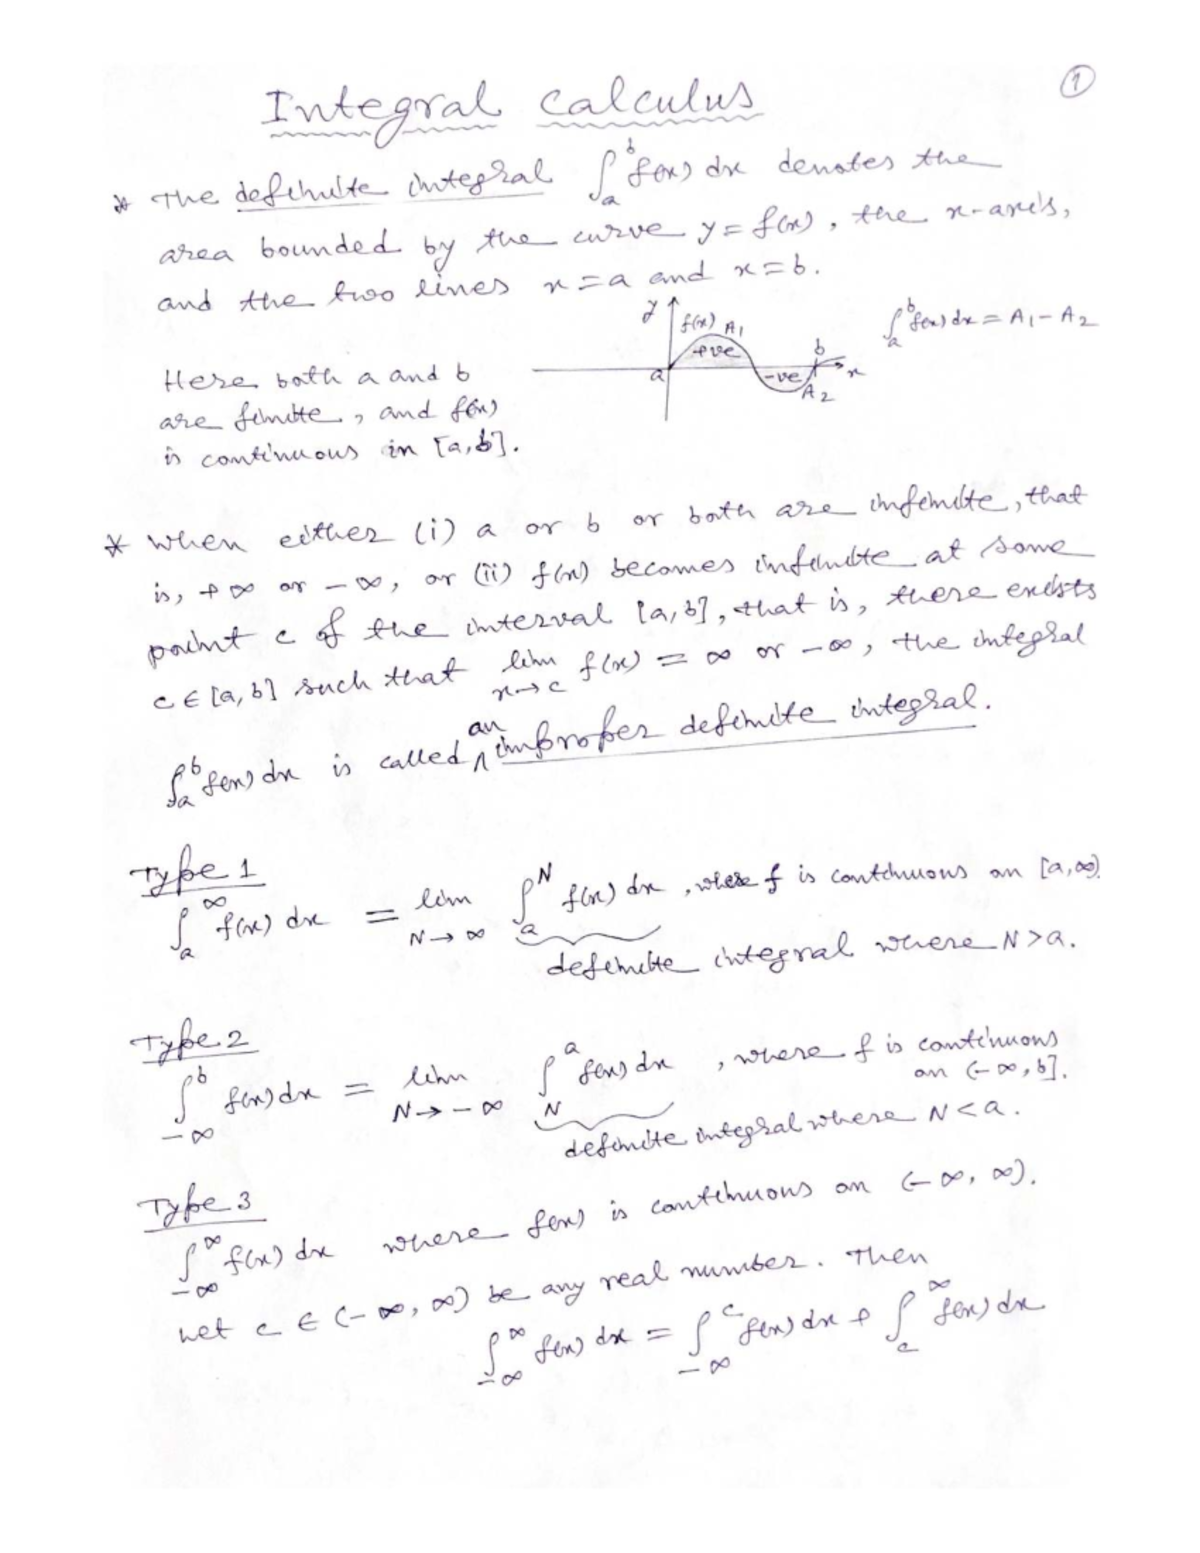 ①
Integral calculus
* The definite integral ∫_a^b f(x) dx denotes the
area bounded by the curve y = f(x), the x-axis,
and the two lines x = a and x = b.
y f(x) A₁ +ve a -ve b x A₂
∫_a^b f(x) dx = A₁ - A₂
Here both a and b
are finite, and f(x)
is continuous in [a,b].
* When either (i) a or b or both are infinite, that
is, +∞ or -∞, or (ii) f(x) becomes infinite at some
point c of the interval [a,b], that is, there exists
c ∈ [a,b] such that lim_{x→c} f(x) = ∞ or -∞, the integral
∫_a^b f(x) dx is called an improper definite integral.
Type 1
∫_a^∞ f(x) dx = lim_{N→∞} ∫_a^N f(x) dx, where f is continuous on [a,∞).
definite integral where N > a.
Type 2
∫_{-∞}^b f(x) dx = lim_{N→-∞} ∫_N^a f(x) dx, where f is continuous
on (-∞, b].
definite integral where N < a.
Type 3
∫_{-∞}^∞ f(x) dx where f(x) is continuous on (-∞, ∞).
Let c ∈ (-∞, ∞) be any real number. Then
∫_{-∞}^∞ f(x) dx = ∫_{-∞}^c f(x) dx + ∫_c^∞ f(x) dx